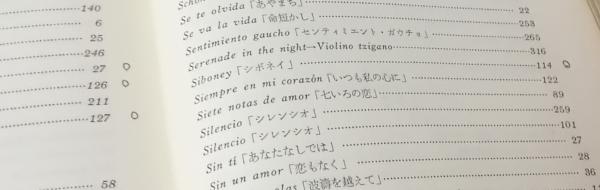 140
6
25
246
27
126
211
127
58
Se te olvida「あやまち」 22
Se va la vida「命短かし」 253
Sentimiento gaucho「センティミエント・ガウチョ」 265
Serenade in the night→Violino tzigano 316
Siboney「シボネイ」 114
Siempre en mi corazón「いつも私の心に」 122
Siete notas de amor「七いろの恋」 89
Silencio「シレンシオ」 259
Silencio「シレンシオ」 101
Sin ti「あなたなしでは」 27
Sin un amor「恋もなく」 28
olas「波濤を越えて」 36